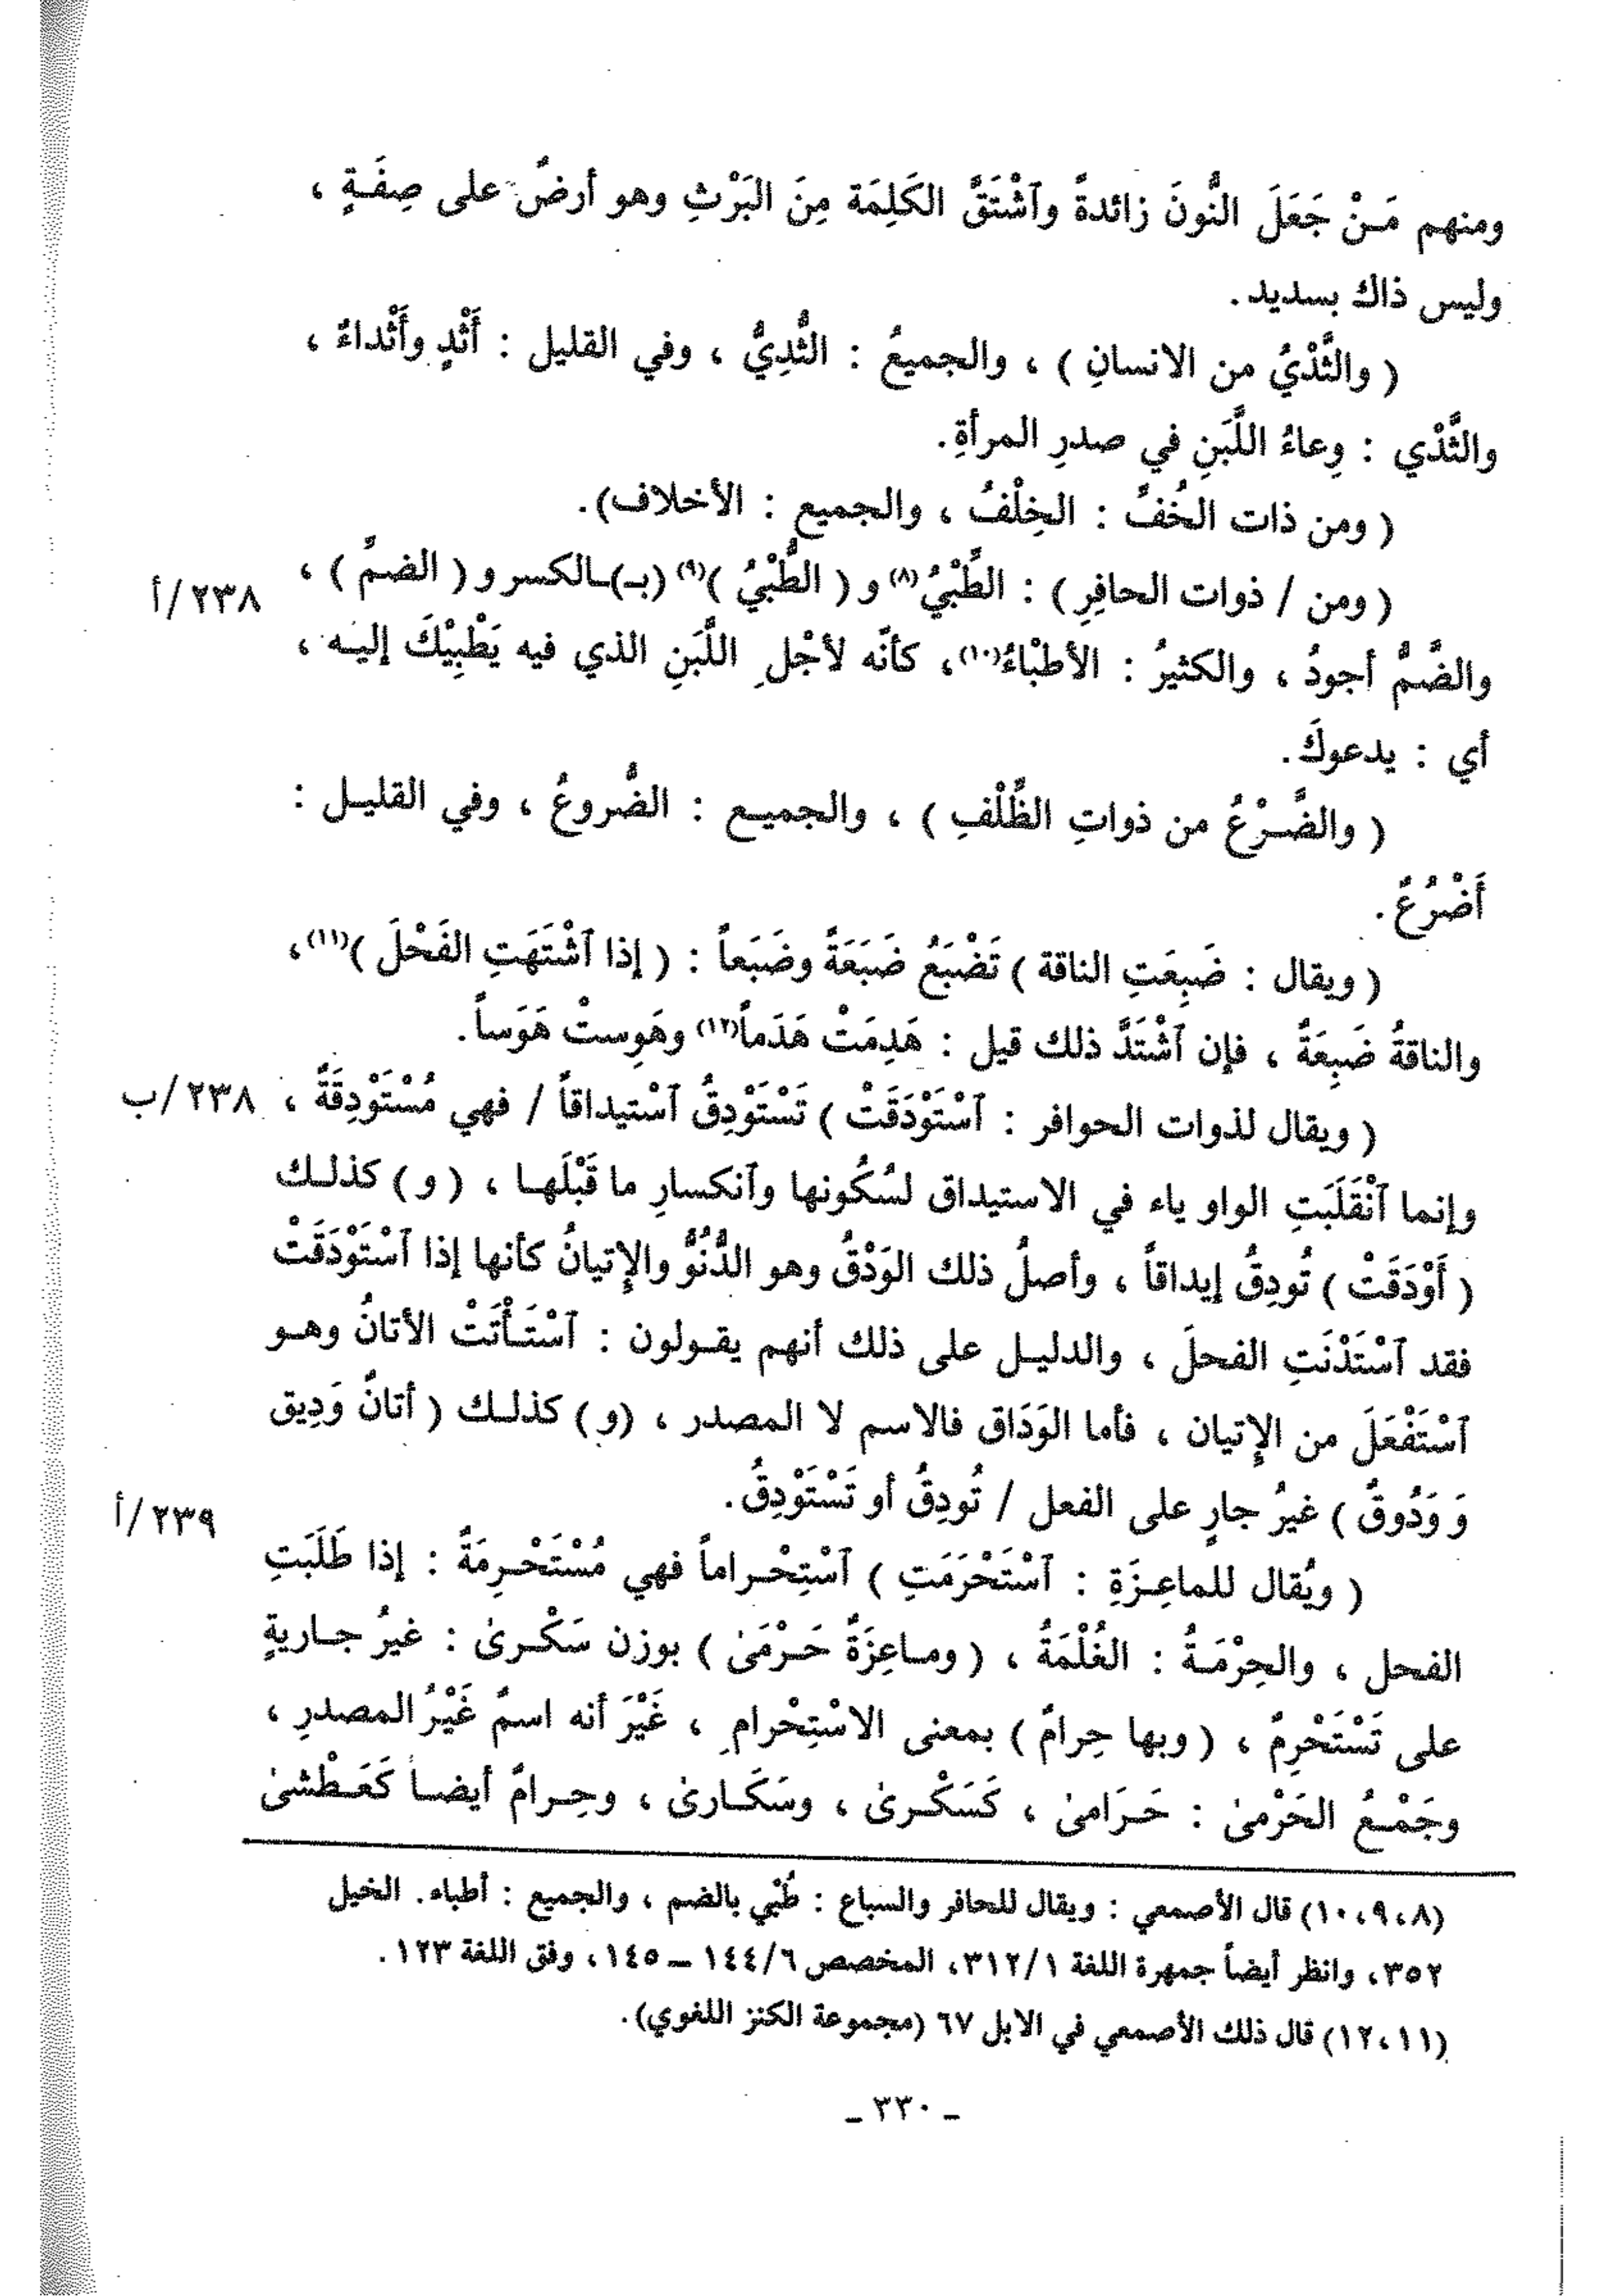 ومنهم مَنْ جَعَلَ النُّونَ زائدةً وٱشْتَقَّ الكَلِمَة مِنَ البَرْثِ وهو أرضٌ على صِفَةٍ ،
وليس ذاك بسديد .
( والثَّدْيُ من الانسانِ ) ، والجميعُ : الثُّدِيُّ ، وفي القليل : أَثْدٍ وأَثْداءٌ ،
والثَّدْي : وِعاءُ اللَّبَنِ في صدرِ المرأةِ .
( ومن ذات الخُفِّ : الخِلْفُ ، والجميع : الأخلاف) .
( ومن / ذوات الحافِرِ ) : الطِّبْيُ(٨) و ( الطُّبْيُ )(٩) (بـ)ـالكسر و ( الضمِّ ) ، ٢٣٨/أ
والضَّمُّ أجودُ ، والكثيرُ : الأطبْاءُ(١٠)، كأنَّه لأجْلِ اللَّبَنِ الذي فيه يَطْبِيْكَ إليه ،
أي : يدعوكَ .
( والضَّرْعُ من ذواتِ الظِّلْفِ ) ، والجميع : الضُّروعُ ، وفي القليل :
أَضْرُعٌ .
( ويقال : ضَبِعَتِ الناقة ) تَضْبَعُ ضَبَعَةً وضَبَعاً : ( إذا ٱشْتَهَتِ الفَحْلَ )(١١)،
والناقةُ ضَبِعَةٌ ، فإن ٱشْتَدَّ ذلك قيل : هَدِمَتْ هَدَماً(١٢) وهَوِستْ هَوَساً .
( ويقال لذوات الحوافر : ٱسْتَوْدَقَتْ ) تَسْتَوْدِقُ ٱسْتيداقاً / فهي مُسْتَوْدِقَةٌ ، ٢٣٨/ب
وإنما ٱنْقَلَبَتِ الواو ياء في الاستيداق لسُكُونها وٱنكسارِ ما قَبْلَها ، ( و ) كذلك
( أَوْدَقَتْ ) تُودِقُ إيداقاً ، وأصلُ ذلك الوَدْقُ وهو الدُّنُوُّ والإتيانُ كأنها إذا ٱسْتَوْدَقَتْ
فقد ٱسْتَدْنَتِ الفحلَ ، والدليل على ذلك أنهم يقولون : ٱسْتَأْتَتْ الأتانُ وهو
ٱسْتَفْعَلَ من الإتيان ، فأما الوَدَاق فالاسم لا المصدر ، (و) كذلك ( أتانٌ وَدِيق
وَ وَدُوقٌ ) غيرُ جارٍ على الفعل / تُودِقُ أو تَسْتَوْدِقُ . ٢٣٩/أ
( ويُقال للماعِزَةِ : ٱسْتَحْرَمَتِ ) ٱسْتِحْراماً فهي مُسْتَحْرِمَةٌ : إذا طَلَبَتِ
الفحل ، والحِرْمَةُ : الغُلْمَةُ ، ( وماعِزَةٌ حَرْمَىٰ ) بوزن سَكْرىٰ : غيرُ جاريةٍ
على تَسْتَحْرِمُ ، ( وبها حِرامٌ ) بمعنى الاسْتِحْرامِ ، غَيْرَ أنه اسمٌ غَيْرُ المصدرِ ،
وجَمْعُ الحَرْمىٰ : حَرَامىٰ ، كَسَكْرىٰ ، وسَكَارىٰ ، وحِرامٌ أيضاً كَعَطْشىٰ
(١٠،٩،٨) قال الأصمعي : ويقال للحافر والسباع : طُبْي بالضم ، والجميع : أطباء . الخيل
٣٥٢، وانظر أيضاً جمهرة اللغة ٣١٢/١، المخصص ١٤٤/٦ – ١٤٥، وفق اللغة ١٢٣ .
(١٢،١١) قال ذلك الأصمعي في الابل ٦٧ (مجموعة الكنز اللغوي) .
ـ ٣٣٠ ـ